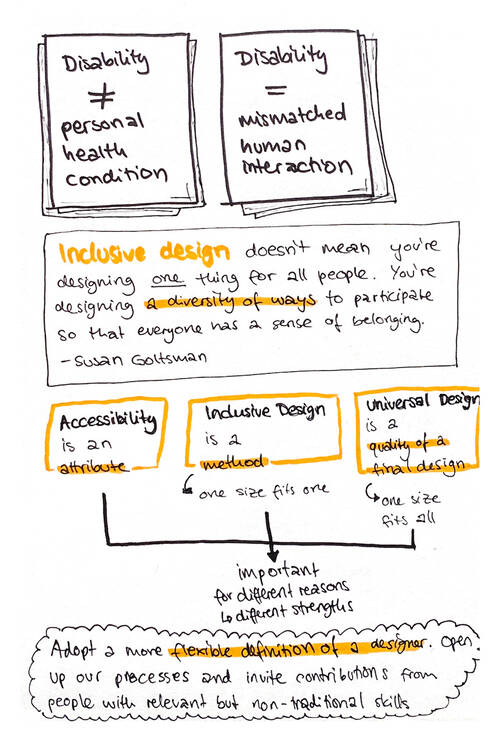 Disability
≠
personal
health
condition
Disability
=
mismatched
human
interaction
Inclusive design doesn't mean you're
designing one thing for all people. You're
designing a diversity of ways to participate
so that everyone has a sense of belonging.
- Susan Goltsman
Accessibility
is an
attribute
Inclusive Design
is a
method
↳ one size fits one
Universal Design
is a
quality of a
final design
↳ one size
fits all
important
for different reasons
↳ different strengths
Adopt a more flexible definition of a designer. Open
up our processes and invite contributions from
people with relevant but non-traditional skills